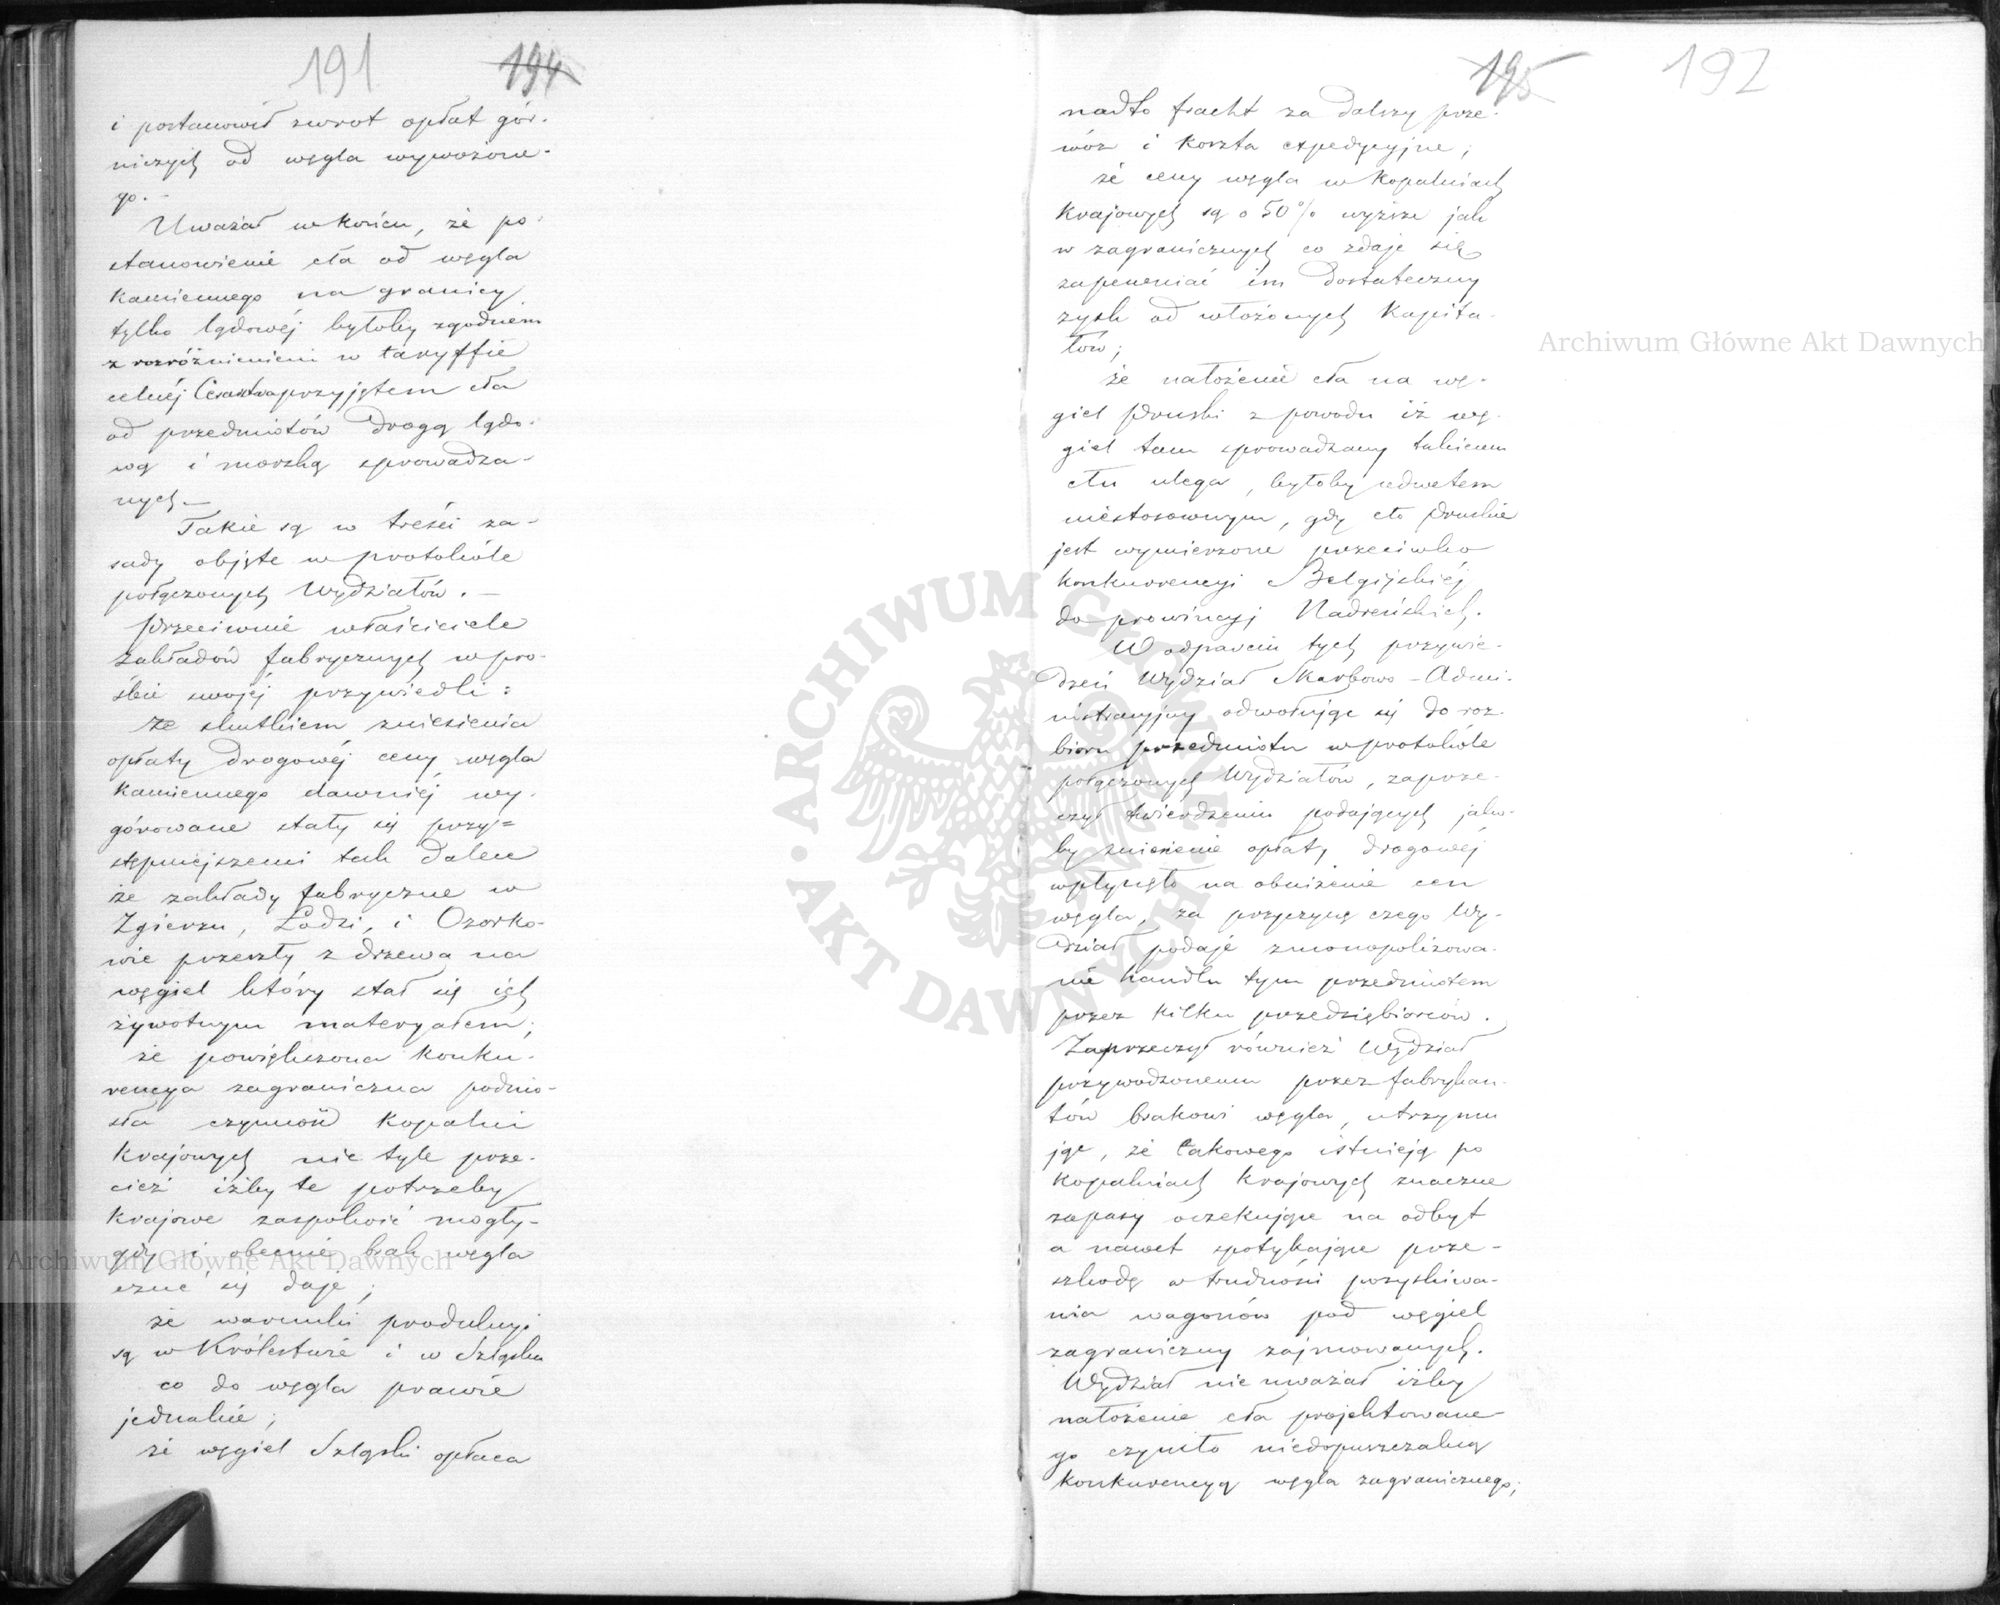 191 194
i postanowił zwrot opłat gór-
niczych od węgla wywożone-
go.-
Uważał w końcu, że po-
stanowienie cła od węgla
Kamiennego na granicy
tylko lądowéj byłoby zgodnem
z rozróżnieniem w taryffie
celnéj Cesarstwa przyjętem cła
od przedmiotów drogą lądo-
wą i morską sprowadza-
nych.-
Takie są w treści za-
sady objęte w protokóle
połączonych Wydziałów.-
Przeciwnie właściciele
Zakładów fabrycznych w pro-
śbie swojéj przywiedli:
że skutkiem zniesienia
opłaty drogowéj ceny węgla
Kamiennego dawniéj wy-
górowane stały się przy=
stępniejszemi tak dalece
że zakłady fabryczne w
Zgierzu, Łodzi, i Ozorko-
wie przeszły z drzewa na
węgiel który stał się ich
żywotnym materyałem;
że powiększona Konku-
rencya zagraniczna podnio-
sła czynność Kopalni
Krajowych nie tyle prze-
cież iżby te potrzeby
Krajowe zaspokoić mogły-
gdy i obecnie brak węgla
czuć się daje;
że warunki produkcyi
są w Królestwie i w Szląsku
co do węgla prawie
jednakie;
że węgiel Szląski opłaca
195 192
nadto fracht za dalszy prze-
wóz i Koszta expedycyjne;
że ceny węgla w Kopalniach
Krajowych są o 50% wyższe jak
w zagranicznych co zdaje się
zapewniać im dostateczny
zysk od włożonych Kapita-
łów;
że nałożenie cła na wę-
giel Pruski z powodu iż wę-
giel tam sprowadzany takiemu
cłu ulega, byłoby odwetem
niestosownym, gdy cło Pruskie
jest wymierzone przeciwko
Konkurencyi Belgijskiéj
do prowincyj Nadreńskich.
W odparciu tych przywie-
dzeń Wydział Skarbowo-Admi-
nistracyjny odwołując się do roz-
bioru przedmiotu w protokóle
połączonych Wydziałów, zaprze-
czył twierdzeniu podających jako-
by zniesienie opłaty drogowéj
wpłynęło na obniżenie cen
węgla, za przyczynę czego Wy-
dział podaje zmonopolizowa-
nie handlu tym przedmiotem
przez Kilku przedsiębiorców.
Zaprzeczył również Wydział
przywodzonemu przez fabrykan-
tów brakowi węgla, utrzymu
jąc, że takowego istnieją po
Kopalniach Krajowych znaczne
zapasy oczekujące na odbyt
a nawet spotykające prze-
szkodę w trudności pozyskiwa-
nia wagonów pod węgiel
zagraniczny zajmowanych.
Wydział nie uważał iżby
nałożenie cła projektowane-
go czyniło niedopuszczalną
Konkurencyą węgla zagranicznego;
Archiwum Główne Akt Dawnych
Archiwum Główne Akt Dawnych
ARCHIWUM GŁÓWNE · AKT DAWNYCH ·